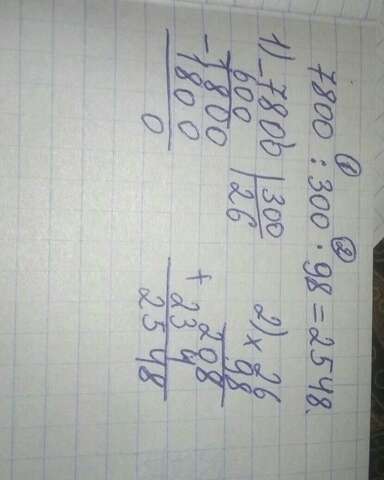 ① ②
7800 : 300 · 98 = 2548.
1) _7800 | 300
600 | 26
_1800
1800
0
2) × 26
98
208
+ 234
2548